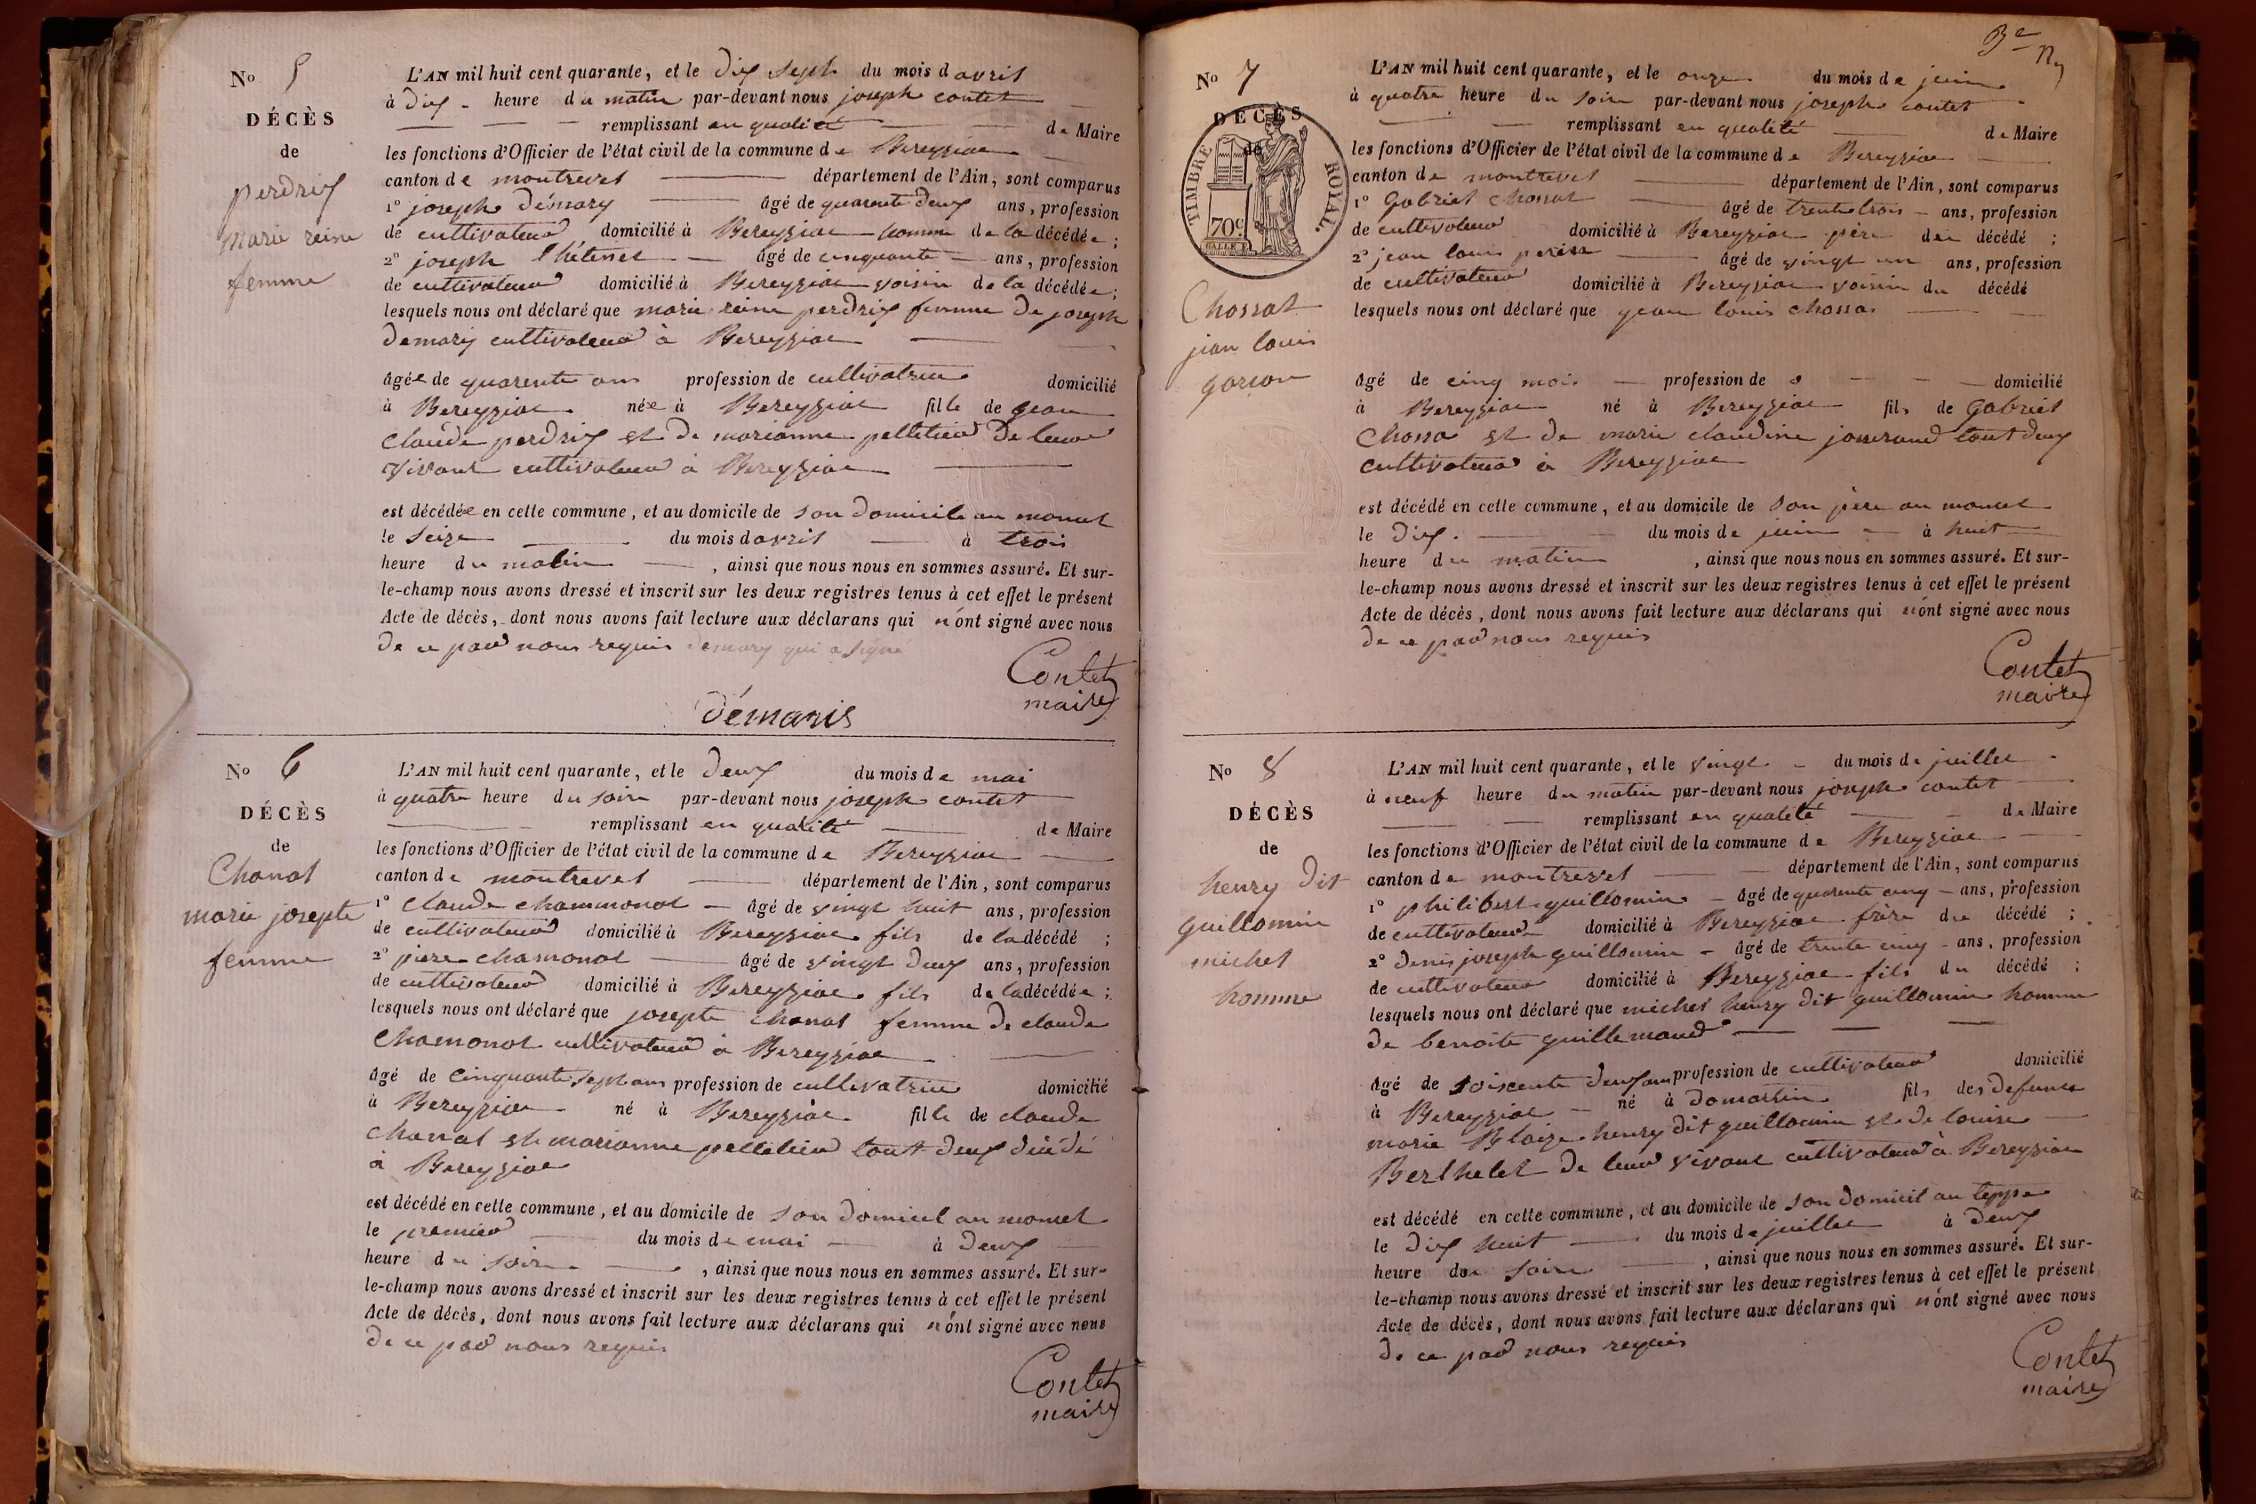 No 5
DÉCÈS
de
perdrix
marie reine
femme
L'AN mil huit cent quarante, et le dix sept du mois d avril
à dix heure du matin par-devant nous joseph contet
remplissant en qualité de Maire
les fonctions d'Officier de l'état civil de la commune de Bereyziac
canton de montrevel département de l'Ain, sont comparus
1° joseph démary âgé de quarente deux ans, profession
de cultivateur domicilié à Bereyziac homme de la décédée;
2° joseph âgé de cinquante ans, profession
de cultivateur domicilié à Bereyziac voisin de la décédée;
lesquels nous ont déclaré que marie reine perdrix femme de joseph
demary cultivateur à Bereyziac
âgée de quarente ans profession de cultivatrice domicilié
à Bereyziac née à Bereyziac fille de jean
claude perdrix et de marianne pelletier de leur
vivant cultivateur à Bereyziac
est décédée en cette commune, et au domicile de son domicile au moncel
le seize du mois d avril à trois
heure du matin, ainsi que nous nous en sommes assuré. Et sur-
le-champ nous avons dressé et inscrit sur les deux registres tenus à cet effet le présent
Acte de décès, dont nous avons fait lecture aux déclarans qui n'ont signé avec nous
de ce par nous requis demary qui a signé
Contet
maire
démaris
No 6
DÉCÈS
de
Chanal
marie josepte
femme
L'AN mil huit cent quarante, et le deux du mois de mai
à quatre heure du soire par-devant nous joseph contet
remplissant en qualité de Maire
les fonctions d'Officier de l'état civil de la commune de Bereyziac
canton de montrevel département de l'Ain, sont comparus
1° claude chammonal âgé de vingt huit ans, profession
de cultivateur domicilié à Bereyziac fils de la décédé;
2° piere chamonal âgé de vingt deux ans, profession
de cultivateur domicilié à Bereyziac fils de la décédée;
lesquels nous ont déclaré que josepte chanal femme de claude
chamonal cultivateur à Bereyziac
âgé de cinquante sept ans profession de cultivatrice domicilié
à Bereyziac né à Bereyziac fille de claude
chanal et marianne pelletier tout deux décédé
à Bereyziac
est décédé en cette commune, et au domicile de son domicil au moncel
le premier du mois de mai à deux
heure du soire, ainsi que nous nous en sommes assuré. Et sur-
le-champ nous avons dressé et inscrit sur les deux registres tenus à cet effet le présent
Acte de décès, dont nous avons fait lecture aux déclarans qui n'ont signé avec nous
de ce par nous requis
Contet
maire
No 7
DÉCÈS
de
TIMBRE ROYAL.
70c
Chossat
jean louis
garçon
L'AN mil huit cent quarante, et le onze du mois de juin
à quatre heure du soire par-devant nous joseph contet
remplissant en qualité de Maire
les fonctions d'Officier de l'état civil de la commune de Bereyziac
canton de montrevel département de l'Ain, sont comparus
1° Gabriel chossat âgé de trente trois ans, profession
de cultivateur domicilié à Bereyziac père du décédé;
2° jean louis âgé de vingt un ans, profession
de cultivateur domicilié à Bereyziac voisin du décédé
lesquels nous ont déclaré que jean louis chossa
âgé de cinq mois profession de domicilié
à Bereyziac né à Bereyziac fils de gabriel
Chossa et de marie claudine josserand tout deux
cultivateur à Bereyziac
est décédé en cette commune, et au domicile de son père au moncel
le dix du mois de juin à huit
heure du matin, ainsi que nous nous en sommes assuré. Et sur-
le-champ nous avons dressé et inscrit sur les deux registres tenus à cet effet le présent
Acte de décès, dont nous avons fait lecture aux déclarans qui n'ont signé avec nous
de ce par nous requis
Contet
maire
No 8
DÉCÈS
de
henry dit
guillomin
michel
homme
L'AN mil huit cent quarante, et le vingt du mois de juillet
à neuf heure du matin par-devant nous joseph contet
remplissant en qualité de Maire
les fonctions d'Officier de l'état civil de la commune de Bereyziac
canton de montrevel département de l'Ain, sont comparus
1° philibert guillomin âgé de quarente cinq ans, profession
de cultivateur domicilié à Bereyziac frère du décédé;
2° denis joseph guillomin âgé de trente cinq ans, profession
de cultivateur domicilié à Bereyziac fils du décédé;
lesquels nous ont déclaré que michel henry dit guillomin homme
de benoite guillemaud
âgé de soixente deux ans profession de cultivateur domicilié
à Bereyziac né à domartin fils des defunts
marie Blaize henry dit guillomin et de louise
Berthelet de leur vivant cultivateur à Bereyziac
est décédé en cette commune, et au domicile de son domicil au teppe
le dix huit du mois de juillet à deux
heure du soire, ainsi que nous nous en sommes assuré. Et sur-
le-champ nous avons dressé et inscrit sur les deux registres tenus à cet effet le présent
Acte de décès, dont nous avons fait lecture aux déclarans qui n'ont signé avec nous
de ce par nous requis
Contet
maire